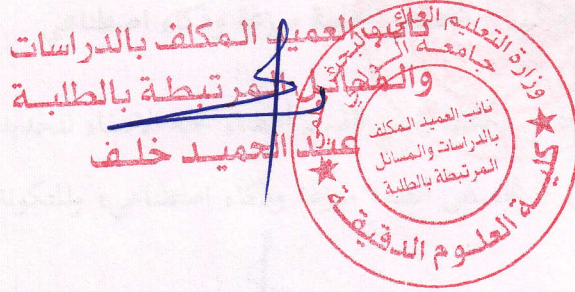 نائب العميد المكلف بالدراسات
والمسائل المرتبطة بالطلبة
عبد الحميد خلف
وزارة التعليم العالي
جامعة
نائب العميد المكلف
بالدراسات والمسائل
المرتبطة بالطلبة
كلية العلوم الدقيقة